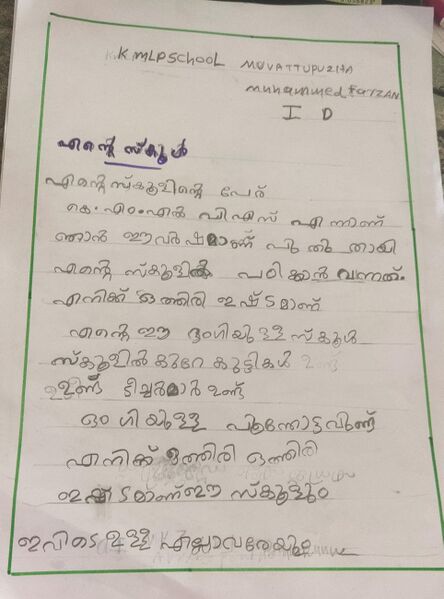 K.K MLP SCHOOL MUVATTUPUZHA
Muhammed Farzan
I D
എന്റെ സ്കൂൾ
എന്റെ സ്കൂളിന്റെ പേര്
കെ.എം.എൽ പി എസ് എന്നാണ്
ഞാൻ ഈ വർഷമാണ് പുതുതായി
എന്റെ സ്കൂളിൽ പഠിക്കാൻ വന്നത്.
എനിക്ക് ഒത്തിരി ഇഷ്ടമാണ്
എന്റെ ഈ ഭംഗിയുള്ള സ്കൂൾ
സ്കൂളിൽ കുറേ കുട്ടികൾ ഉണ്ട്
ടീച്ചർമാർ ഉണ്ട്
ഭംഗിയുള്ള പൂന്തോട്ടവുണ്ട്
എനിക്ക് ഒത്തിരി ഒത്തിരി
ഇഷ്ടമാണ് ഈ സ്കൂളും
ഇവിടെ ഉള്ള എല്ലാവരേയും